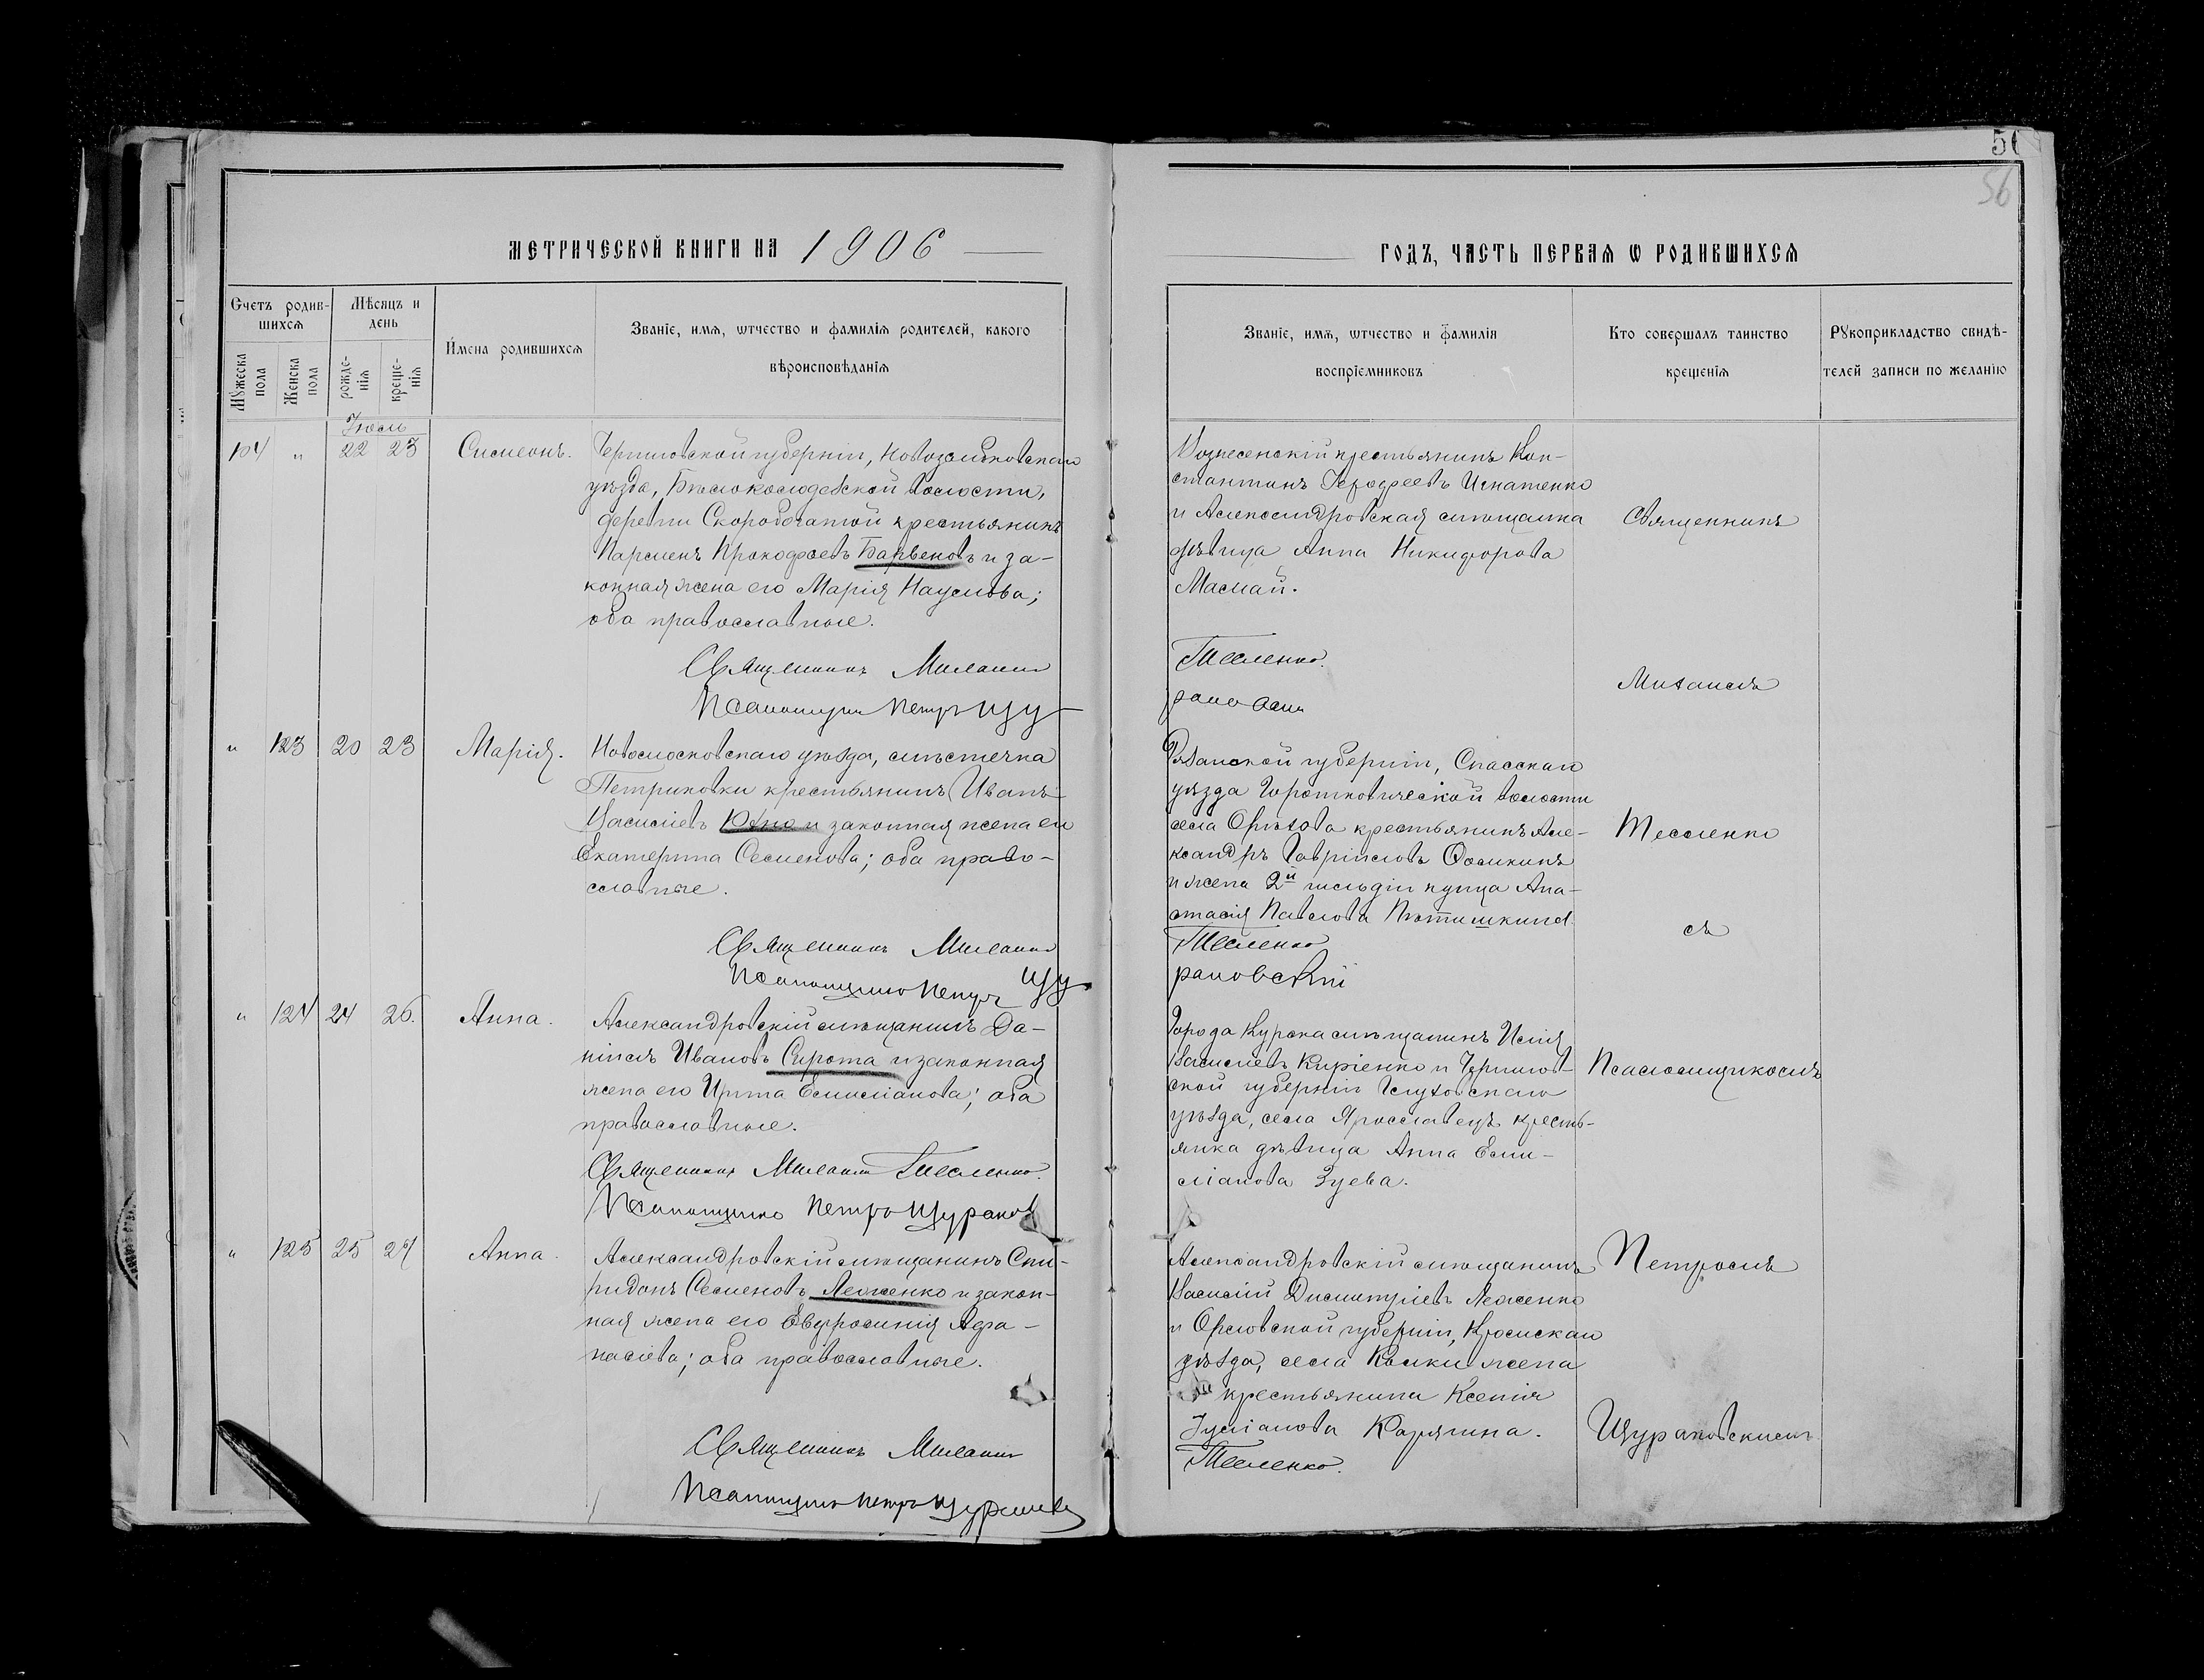 56
56
МЕТРИЧЕСКОЙ КНИГИ НА 1906
ГОДЪ, ЧАСТЬ ПЕРВАЯ Ѡ РОДИВШИХСѦ
Счетъ родив-
шихсѧ
Мѣсяцъ и
день
Мꙋжеска
пола
Женска
пола
рожде-
нїѧ
креще-
нїѧ
Имена родившихсѧ
Званїе, имѧ, ѡтчество и фамилїѧ родителей, какого
вѣроисповѣданїѧ
Званїе, имѧ, ѡтчество и фамилїѧ
воспрїемниковъ
Кто совершалъ таинство
крещенїѧ
Рꙋкоприкладство свидѣ-
телей записи по желанїю
Іюль
104 " 22 23 Симеонъ.
Черниговской губерніи, Новозыбковскаго
уѣзда, Бѣлоколодезской волости,
деревни Скоробогатой крестьянинъ
Парменъ Прокофіевъ и за-
конная жена его Марія Наумова;
оба православные.
Священникъ Михаилъ
Псаломщикъ Петръ Щу
Вознесенскій крестьянинъ Кон-
стантинъ Игнатенко
и Александровская мѣщанка
дѣвица Анна Никифорова
Мамай.
Тесленко.
рановскій
Священникъ
Михаилъ
" 123 20 23 Марія.
Новомосковскаго уѣзда, мѣстечка
Петриковки крестьянинъ Иванъ
Васильевъ и законная жена его
Екатерина Семенова; оба право-
славные.
Священникъ Михаилъ
Псаломщикъ Петръ Щу
Рязанской губерніи, Спасскаго
уѣзда волости
села крестьянинъ Але-
ксандръ Гавріиловъ Ѳомкинъ
и жена 2й гильдіи купца Ана-
стасія Павлова
Тесленко
рановскій
Тесленко
съ
" 124 24 26. Анна.
Александровскій мѣщанинъ Да-
ніилъ Ивановъ Сирота и законная
жена его Ирина Емиліанова; оба
православные.
Священникъ Михаилъ Тесленко.
Псаломщикъ Петръ Щуранов
Города Курска мѣщанинъ Илія
Васильевъ Киріенко и Чернигов-
ской губерніи Глуховскаго
уѣзда, села Ярославецъ кресть-
янка дѣвица Анна Еми-
ліанова Зуева.
Псаломщикомъ
" 125 25 27 Анна.
Александровскій мѣщанинъ Спи-
ридонъ Семеновъ Леженко и закон-
ная жена его Евфросинія Афа-
насіева; оба православные.
Священникъ Михаилъ
Псаломщикъ Петръ
Александровскій мѣщанинъ
Василій Димитріевъ Леженко
и Орловской губерніи, Кромскаго
уѣзда, села жена
крестьянина Ксенія
Іуліанова Карягина.
Тесленко.
Петромъ
Щурановскимъ